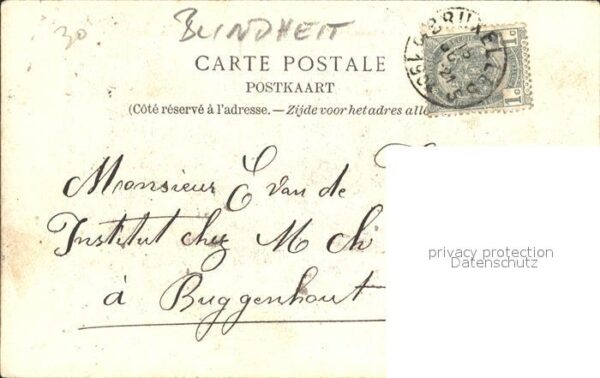 30
BLINDHEIT
BRUXELLES
1c 1c
CARTE POSTALE
POSTKAART
(Côté réservé à l'adresse. — Zijde voor het adres
Monsieur E van de
Institut chez M Ch
à Buggenhout
privacy protection
Datenschutz